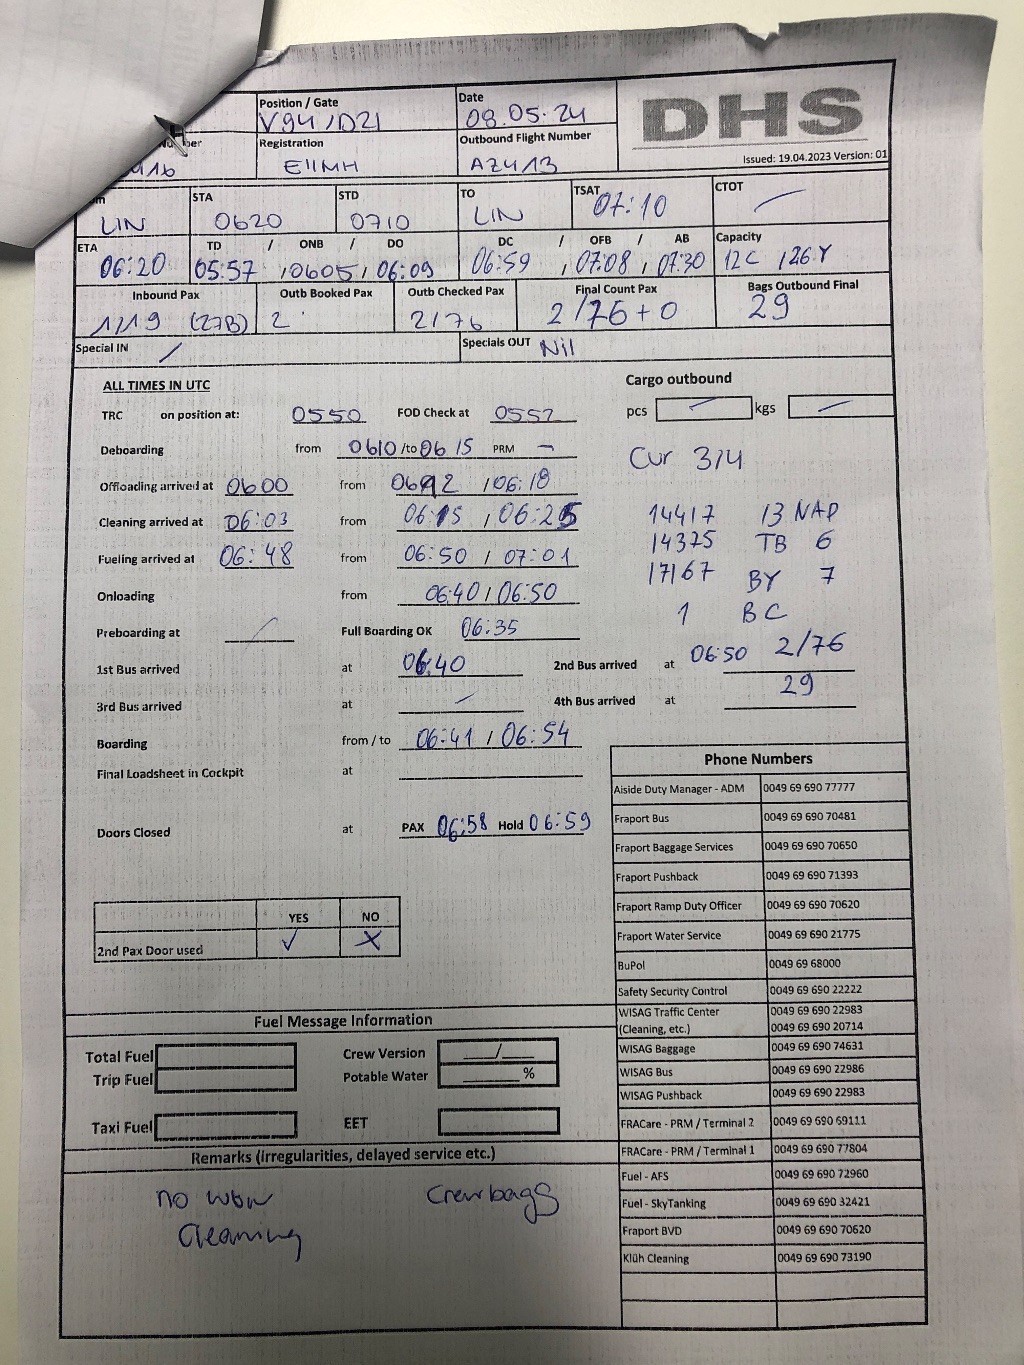 Position / Gate Date DHS
V94 / D21 08.05.24
Registration Outbound Flight Number
EIIMH AZ413 Issued: 19.04.2023 Version: 01
STA STD TO TSAT CTOT
LIN 0620 0710 LIN 07:10 /
ETA TD / ONB / DO DC / OFB / AB Capacity
06:20 05:57 / 0605 / 06:09 06:59 / 07:08 / 07:30 12C / 126Y
Inbound Pax Outb Booked Pax Outb Checked Pax Final Count Pax Bags Outbound Final
1/119 (27B) 2 2/76 2/76+0 29
Special IN / Specials OUT Nil
ALL TIMES IN UTC Cargo outbound
TRC on position at: 0550 FOD Check at 0552 pcs / kgs /
Deboarding from 0610 /to 06 15 PRM -
Cur 314
Offloading arrived at 0600 from / 06:18
Cleaning arrived at 06:03 from 06:15 / 06:25 14417 13 NAP
Fueling arrived at 06:48 from 06:50 / 07:01 14375 TB 6
17167 BY 7
Onloading from 06:40 / 06:50
1 BC
Preboarding at / Full Boarding OK 06:35
1st Bus arrived at 06:40 2nd Bus arrived at 06:50 2/76
29
3rd Bus arrived at / 4th Bus arrived at
Boarding from / to 06:41 / 06:54
Final Loadsheet in Cockpit at
Doors Closed at PAX 06:58 Hold 06:59
YES NO
2nd Pax Door used ✓ X
Phone Numbers
Aiside Duty Manager - ADM 0049 69 690 77777
Fraport Bus 0049 69 690 70481
Fraport Baggage Services 0049 69 690 70650
Fraport Pushback 0049 69 690 71393
Fraport Ramp Duty Officer 0049 69 690 70620
Fraport Water Service 0049 69 690 21775
BuPol 0049 69 68000
Safety Security Control 0049 69 690 22222
WISAG Traffic Center 0049 69 690 22983
(Cleaning, etc.) 0049 69 690 20714
WISAG Baggage 0049 69 690 74631
WISAG Bus 0049 69 690 22986
WISAG Pushback 0049 69 690 22983
FRACare - PRM / Terminal 2 0049 69 690 69111
FRACare - PRM / Terminal 1 0049 69 690 77804
Fuel - AFS 0049 69 690 72960
Fuel - SkyTanking 0049 69 690 32421
Fraport BVD 0049 69 690 70620
Klüh Cleaning 0049 69 690 73190
Fuel Message Information
Total Fuel Crew Version /
Trip Fuel Potable Water %
Taxi Fuel EET
Remarks (irregularities, delayed service etc.)
no Crewbags
Cleaning